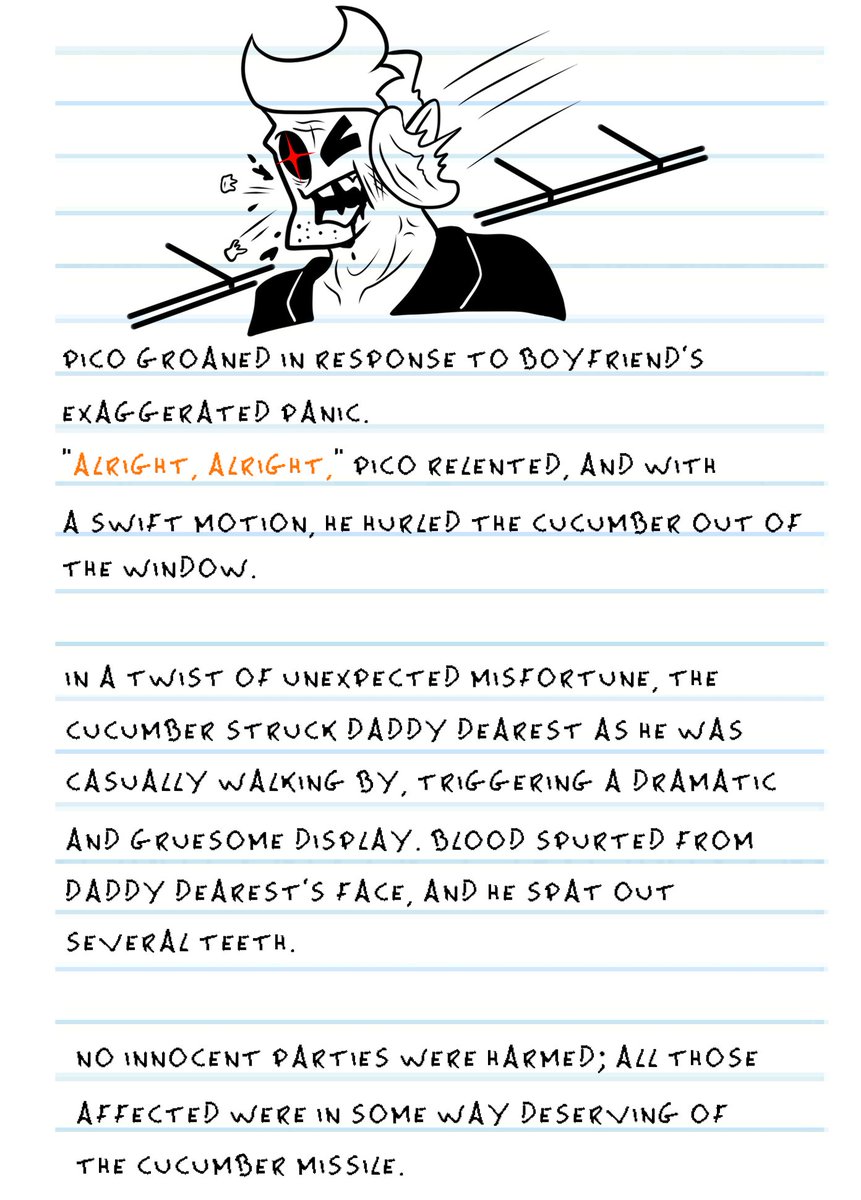 PICO GROANED IN RESPONSE TO BOYFRIEND'S
EXAGGERATED PANIC.
"ALRIGHT, ALRIGHT," PICO RELENTED, AND WITH
A SWIFT MOTION, HE HURLED THE CUCUMBER OUT OF
THE WINDOW.
IN A TWIST OF UNEXPECTED MISFORTUNE, THE
CUCUMBER STRUCK DADDY DEAREST AS HE WAS
CASUALLY WALKING BY, TRIGGERING A DRAMATIC
AND GRUESOME DISPLAY. BLOOD SPURTED FROM
DADDY DEAREST'S FACE, AND HE SPAT OUT
SEVERAL TEETH.
NO INNOCENT PARTIES WERE HARMED; ALL THOSE
AFFECTED WERE IN SOME WAY DESERVING OF
THE CUCUMBER MISSILE.